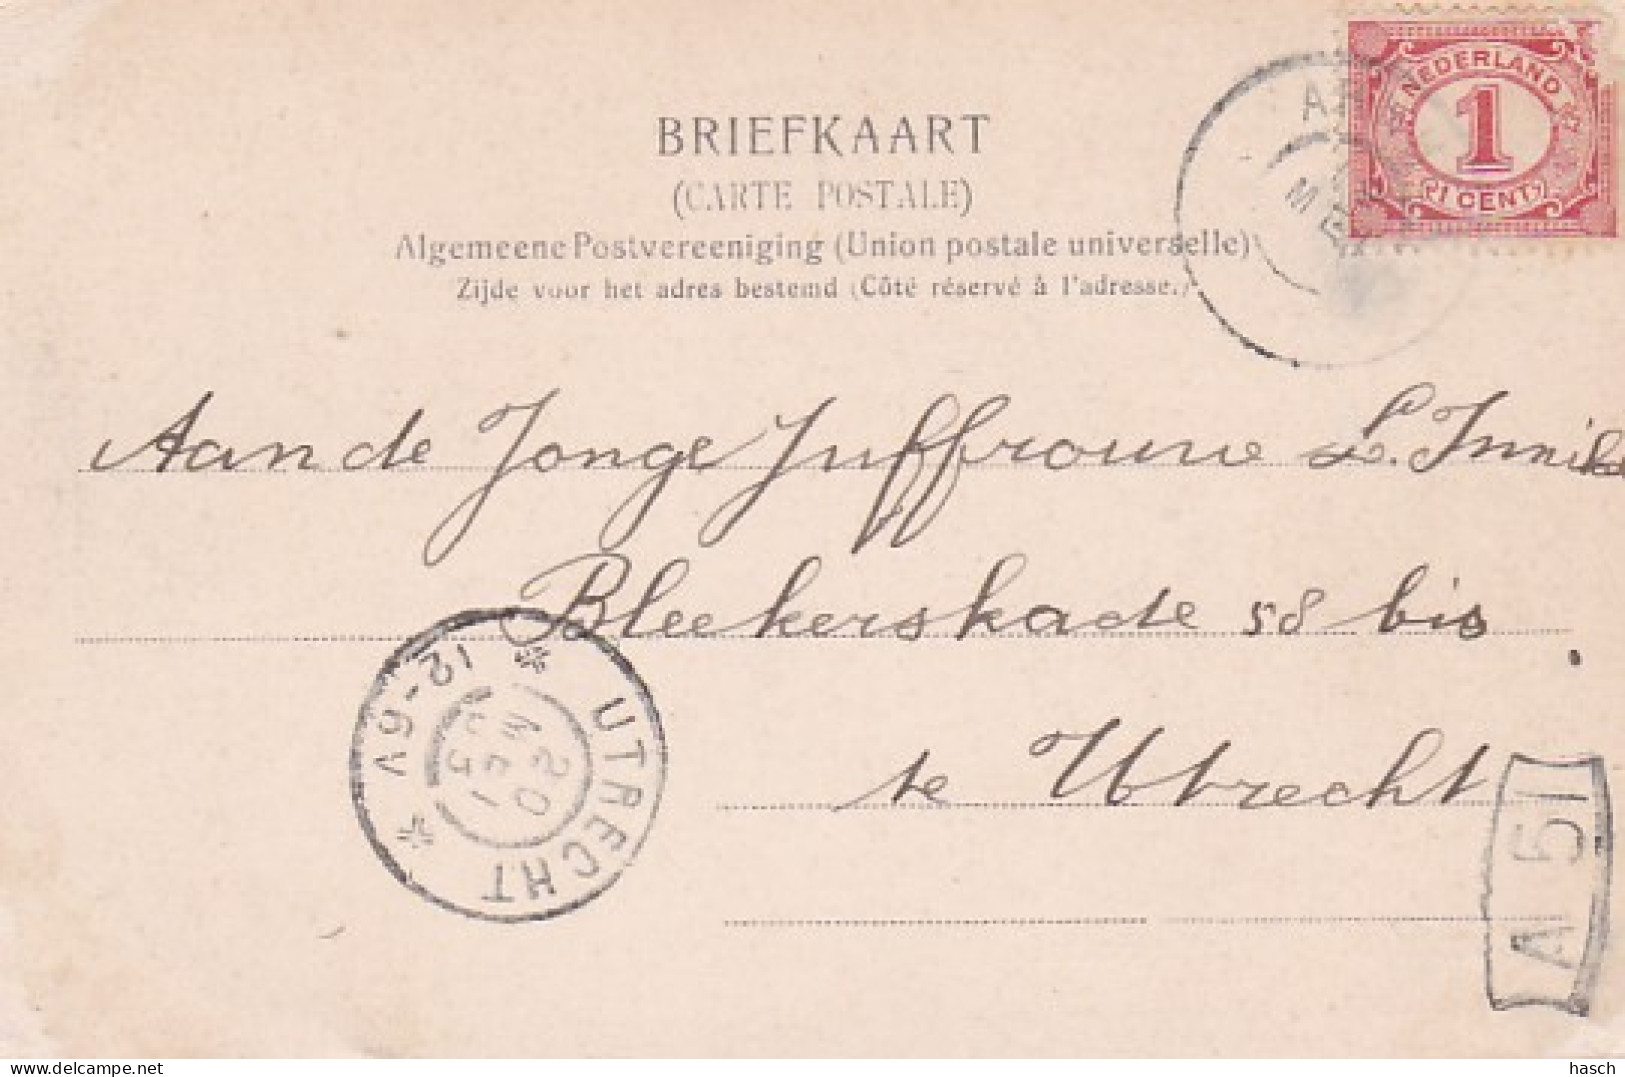 BRIEFKAART
(CARTE POSTALE)
Algemeene Postvereeniging (Union postale universelle)
Zijde voor het adres bestemd (Côté réservé à l'adresse.)
NEDERLAND
1
1 CENT
Aan de Jonge Juffrouw L.
Bleekerskade 58 bis
te Utrecht
UTRECHT
12-6V
20
A 51
delcampe.net
hasch